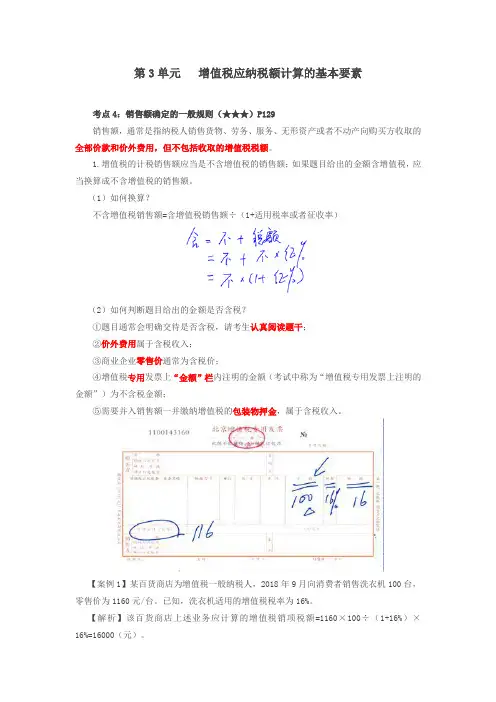 第3单元 增值税应纳税额计算的基本要素
考点4：销售额确定的一般规则（★★★）P129
销售额，通常是指纳税人销售货物、劳务、服务、无形资产或者不动产向购买方收取的
全部价款和价外费用，但不包括收取的增值税税额。
1.增值税的计税销售额应当是不含增值税的销售额；如果题目给出的金额含增值税，应
当换算成不含增值税的销售额。
（1）如何换算？
不含增值税销售额=含增值税销售额÷（1+适用税率或者征收率）
含 = 不 + 税额
= 不 + 不 × 征%
= 不 × (1+ 征%)
（2）如何判断题目给出的金额是否含税？
①题目通常会明确交待是否含税，请考生认真阅读题干；
②价外费用属于含税收入；
③商业企业零售价通常为含税价；
④增值税专用发票上“金额”栏内注明的金额（考试中称为“增值税专用发票上注明的
金额”）为不含税金额；
⑤需要并入销售额一并缴纳增值税的包装物押金，属于含税收入。
1100143160 北京增值税专用发票 №
100 16% 16
116
【案例1】某百货商店为增值税一般纳税人，2018年9月向消费者销售洗衣机100台，
零售价为1160元/台。已知，洗衣机适用的增值税税率为16%。
【解析】该百货商店上述业务应计算的增值税销项税额=1160×100÷（1+16%）×
16%=16000（元）。